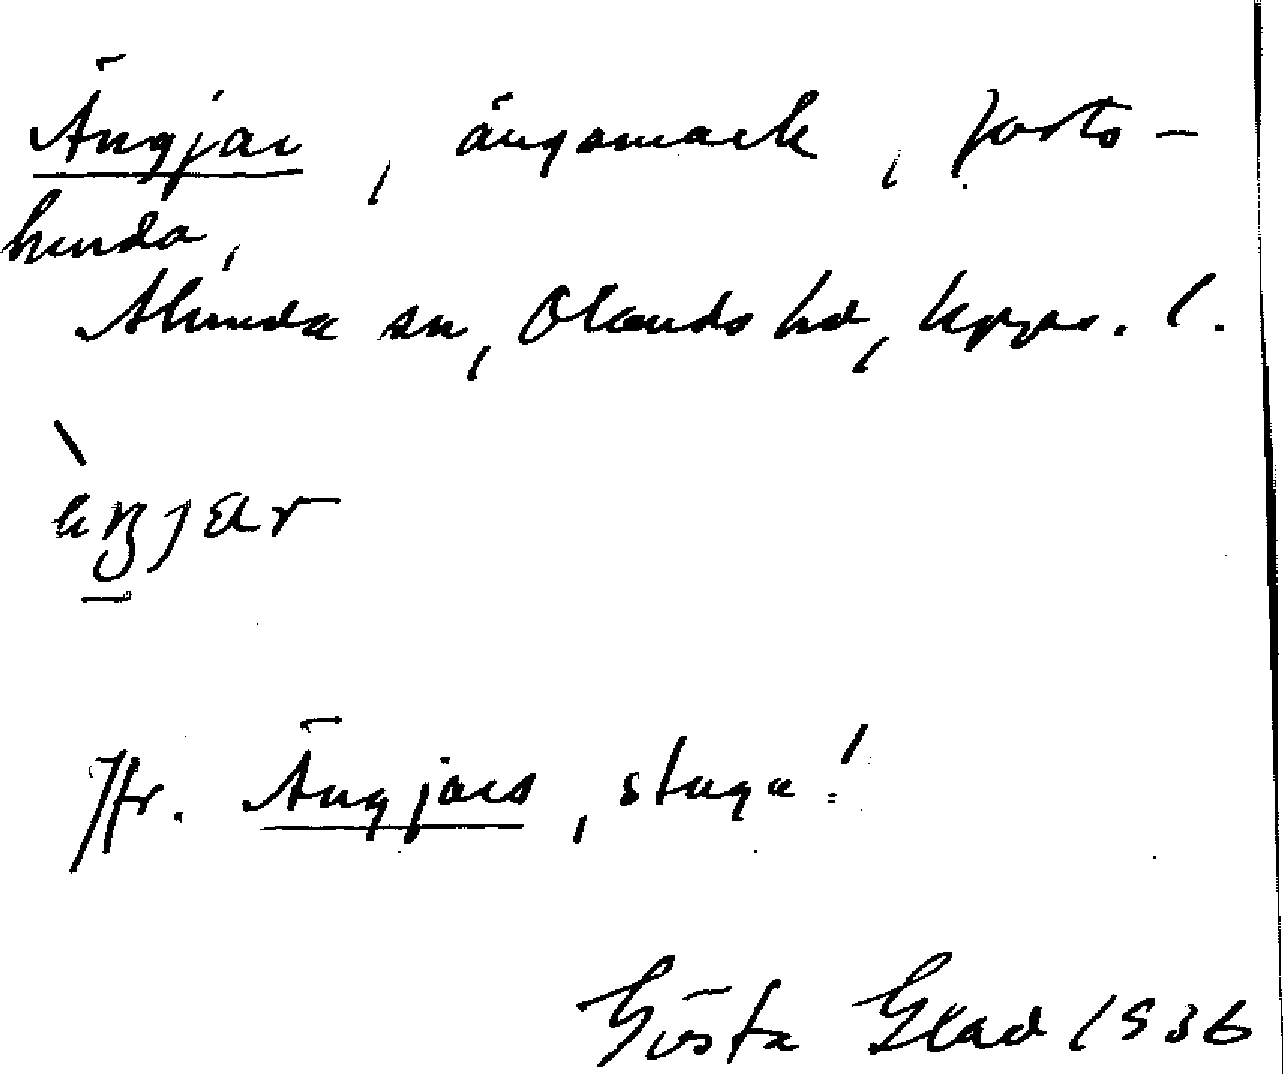 Ängjar, ängsmark, Forts-
hunda,
Alunda sn, Olands hd, Upps. l.
Jfr. Ängjars, stuga!
Gösta Glad 1936